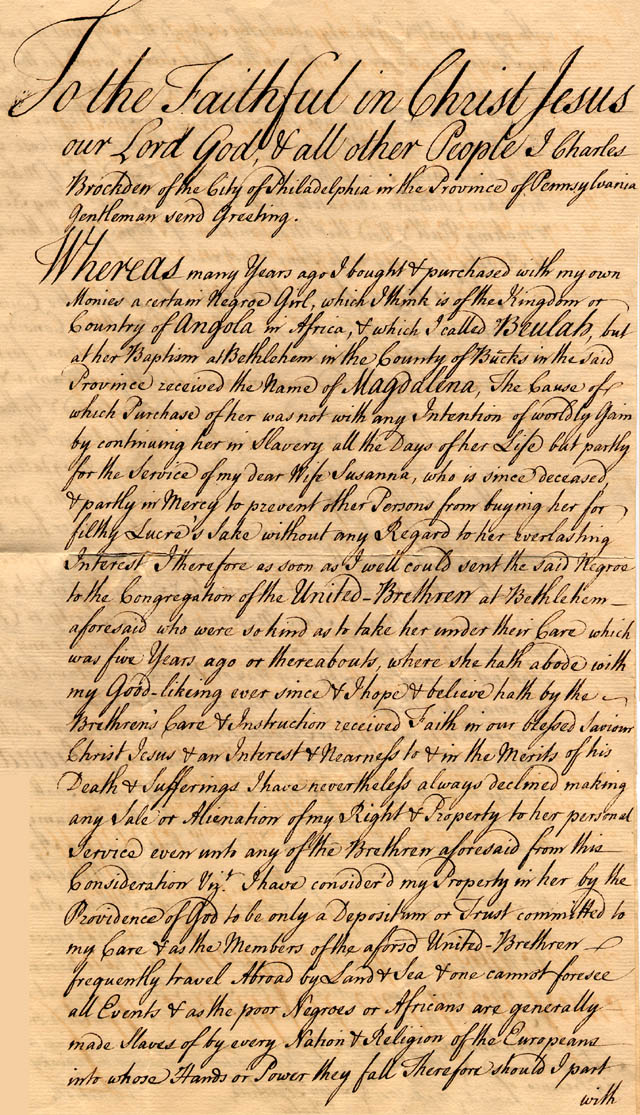 To the Faithful in Christ Jesus
our Lord God, & all other People I Charles
Brockden of the City of Philadelphia in the Province of Pennsylvania
Gentleman send Greeting.
Whereas many Years ago I bought & purchased with my own
Monies a certain Negroe Girl, which I think is of the Kingdom or
Country of Angola in Africa, & which I called Beulah, but
at her Baptism at Bethlehem in the County of Bucks in the said
Province received the Name of Magdalena, The Cause of
which Purchase of her was not with any Intention of worldly Gain
by continuing her in Slavery all the Days of her Life but partly
for the Service of my dear Wife Susanna, who is since deceased,
& partly in Mercy to prevent other Persons from buying her for
filthy Lucre's Sake without any Regard to her everlasting
Interest I therefore as soon as I well could sent the said Negroe
to the Congregation of the United-Brethren at Bethlehem
aforesaid who were so kind as to take her under their Care which
was five Years ago or thereabouts, where she hath abode with
my Good-likeing ever since & I hope & believe hath by the
Brethren's Care & Instruction received Faith in our blessed Saviour
Christ Jesus & an Interest & Nearness to & in the Merits of his
Death & Sufferings I have nevertheless always declined making
any Sale or Alienation of my Right & Property to her personal
Service even unto any of the Brethren aforesaid from this
Consideration Vizt. I have consider'd my Property in her by the
Providence of God to be only a Depositum or Trust committed to
my Care & as the Members of the aforsd United-Brethren
frequently travel Abroad by Land & Sea & one cannot foresee
all Events & as the poor Negroes or Africans are generally
made Slaves of by every Nation & Religion of the Europeans
into whose Hands or Power they fall Therefore should I part
with